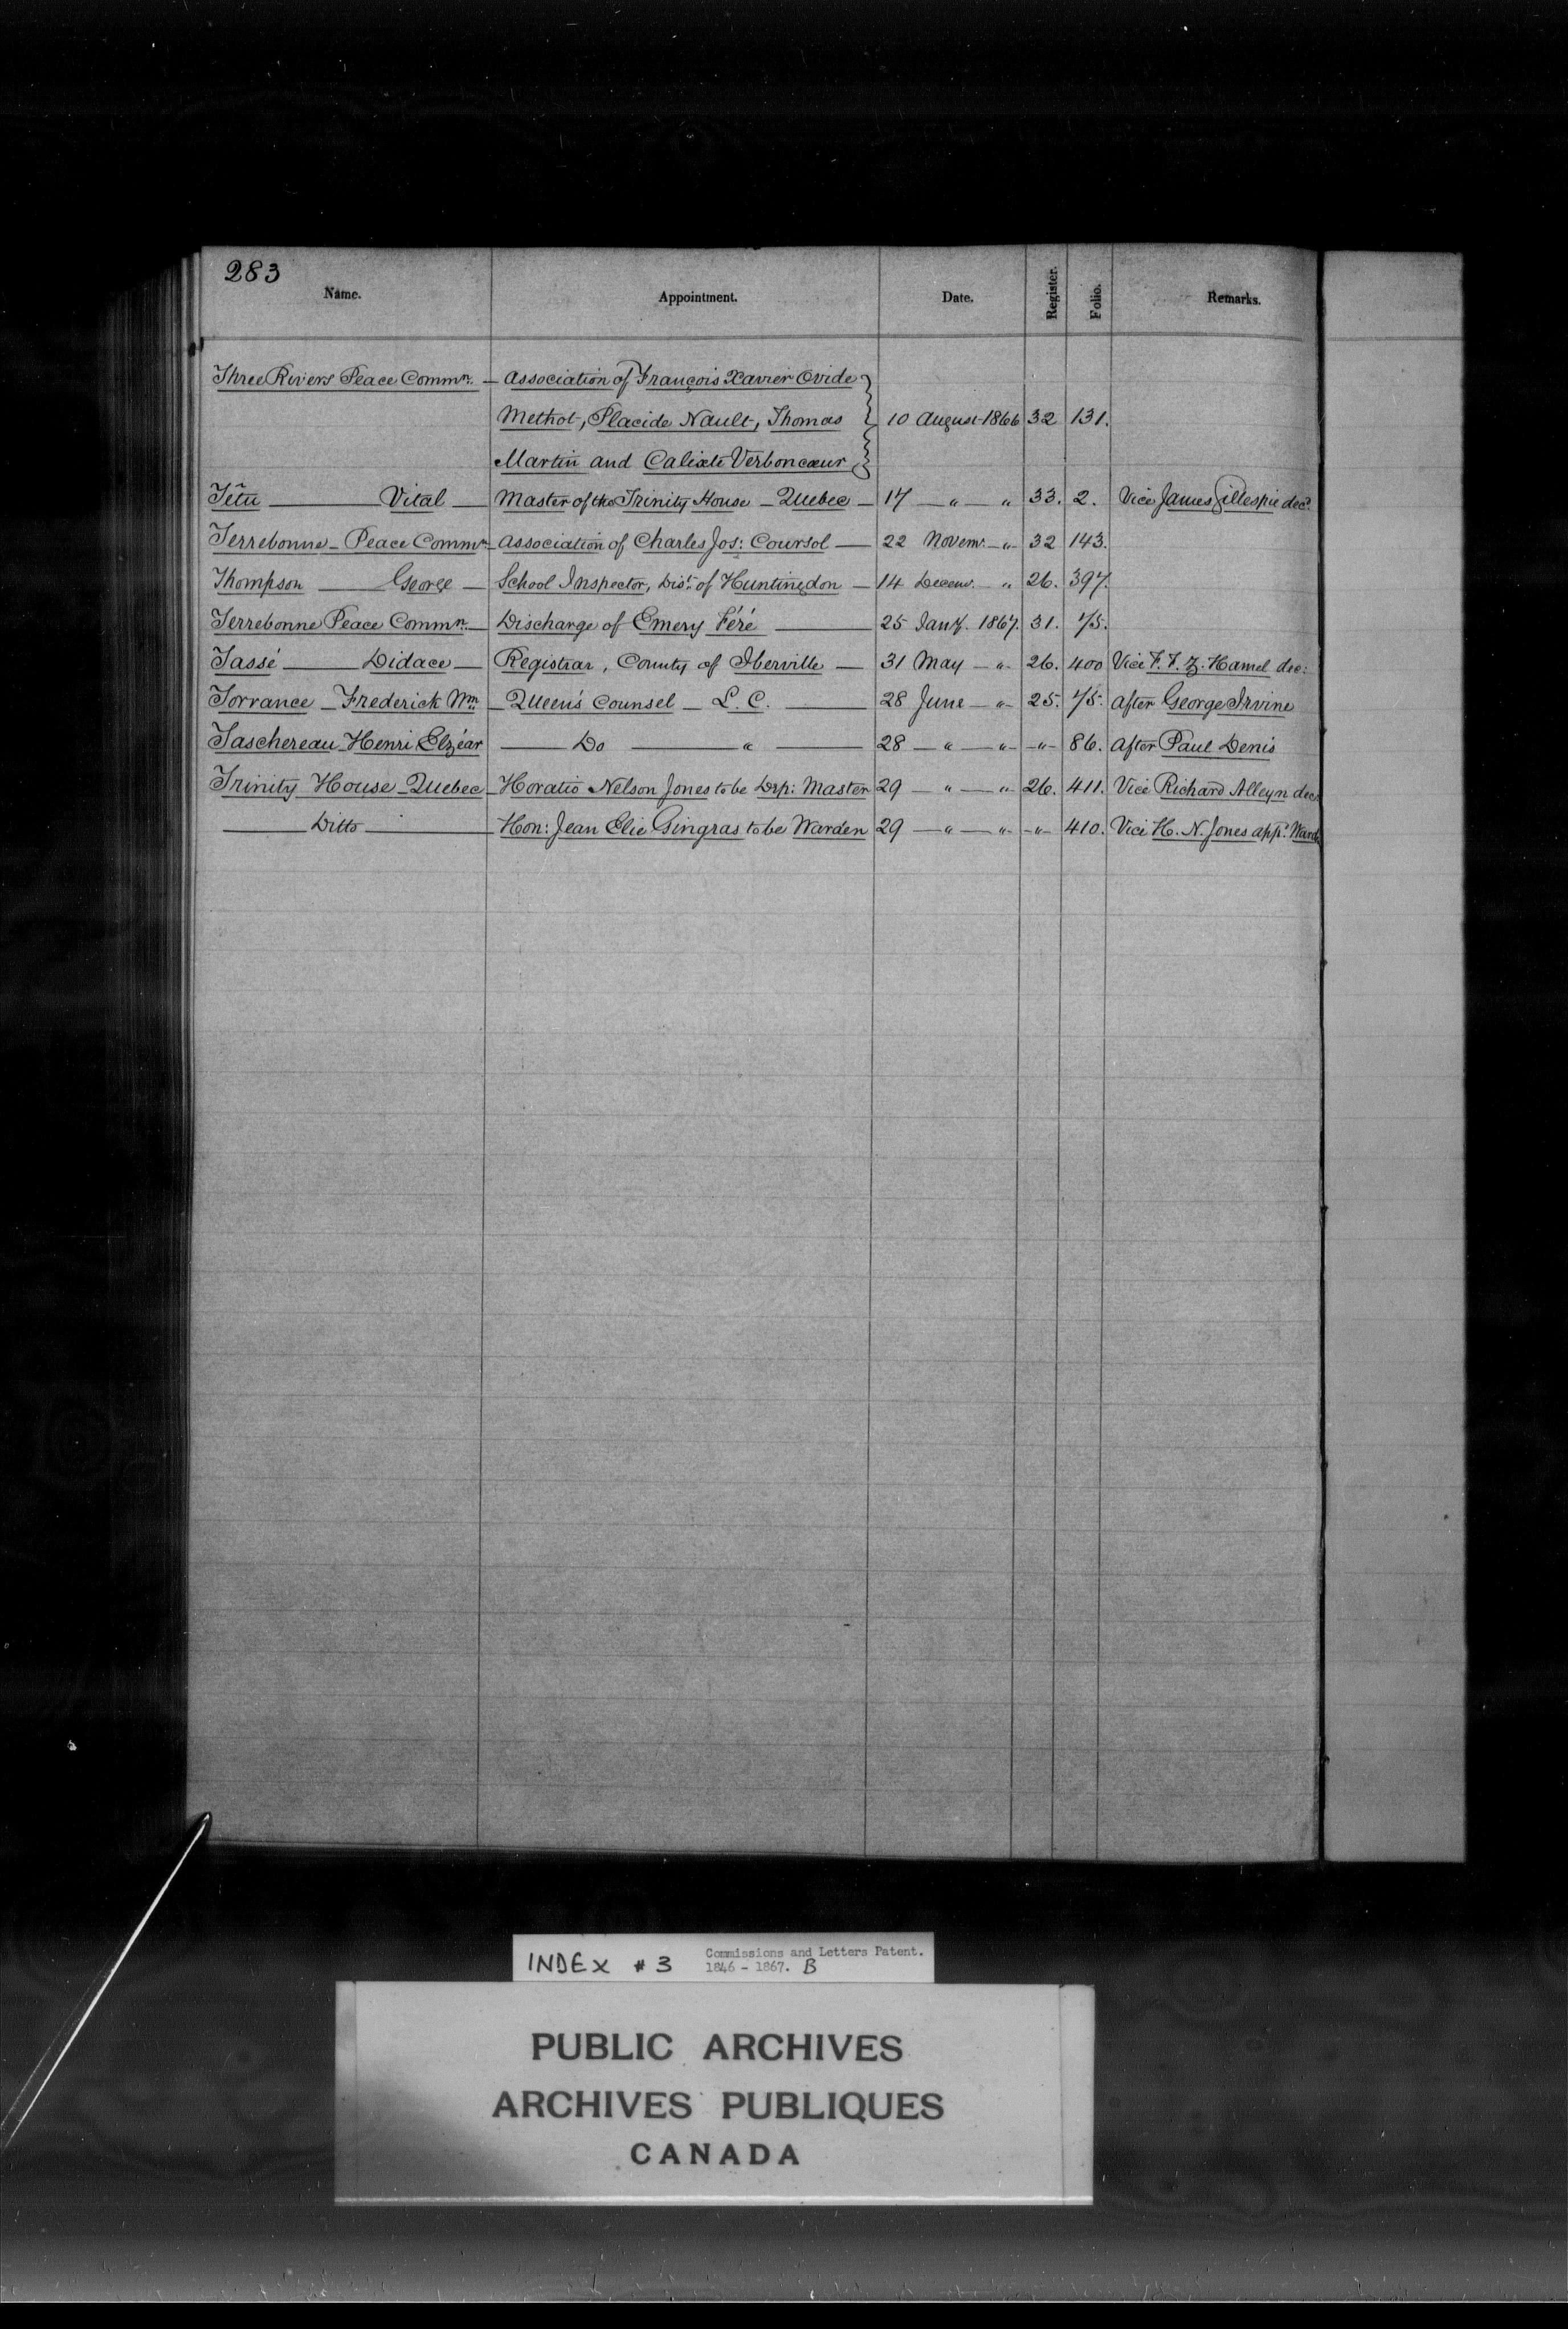 283
Name. Appointment. Date. Register. Folio. Remarks.
Three Rivers Peace Commn. — Association of François Xavier Ovide
Methot, Placide Nault, Thomas 10 August 1866 32 131.
Martin and Calixte Verboncœur
Têtu — Vital — Master of the Trinity House — Quebec — 17 — " — " 33. 2. Vice James Gillespie decd.
Terrebonne — Peace Commn. — Association of Charles Jos: Coursol — 22 Novemr. — " — 32 143.
Thompson — George — School Inspector, Dist. of Huntingdon — 14 Decemr. — " 26. 397.
Terrebonne Peace Commn. — Discharge of Emery Féré — 25 Jany. 1867. 31. 75.
Tassé — Didace — Registrar, County of Iberville — 31 May — " — 26. 400 Vice F. F. Z. Hamel dec:
Torrance — Frederick Wm — Queen's Counsel — L. C. — 28 June — " — 25. 75. After George Irvine
Taschereau Henri Elzéar — Do — " — 28 — " — " — " — 86. After Paul Denis
Trinity House — Quebec — Horatio Nelson Jones to be Dep: Master 29 — " — " — 26. 411. Vice Richard Alleyn dec
— Ditto — Hon: Jean Elie Gingras to be Warden 29 — " — " — " — 410. Vice H. N. Jones app. Ward
INDEX # 3 Commissions and Letters Patent.
1846 - 1867. B
PUBLIC ARCHIVES
ARCHIVES PUBLIQUES
CANADA